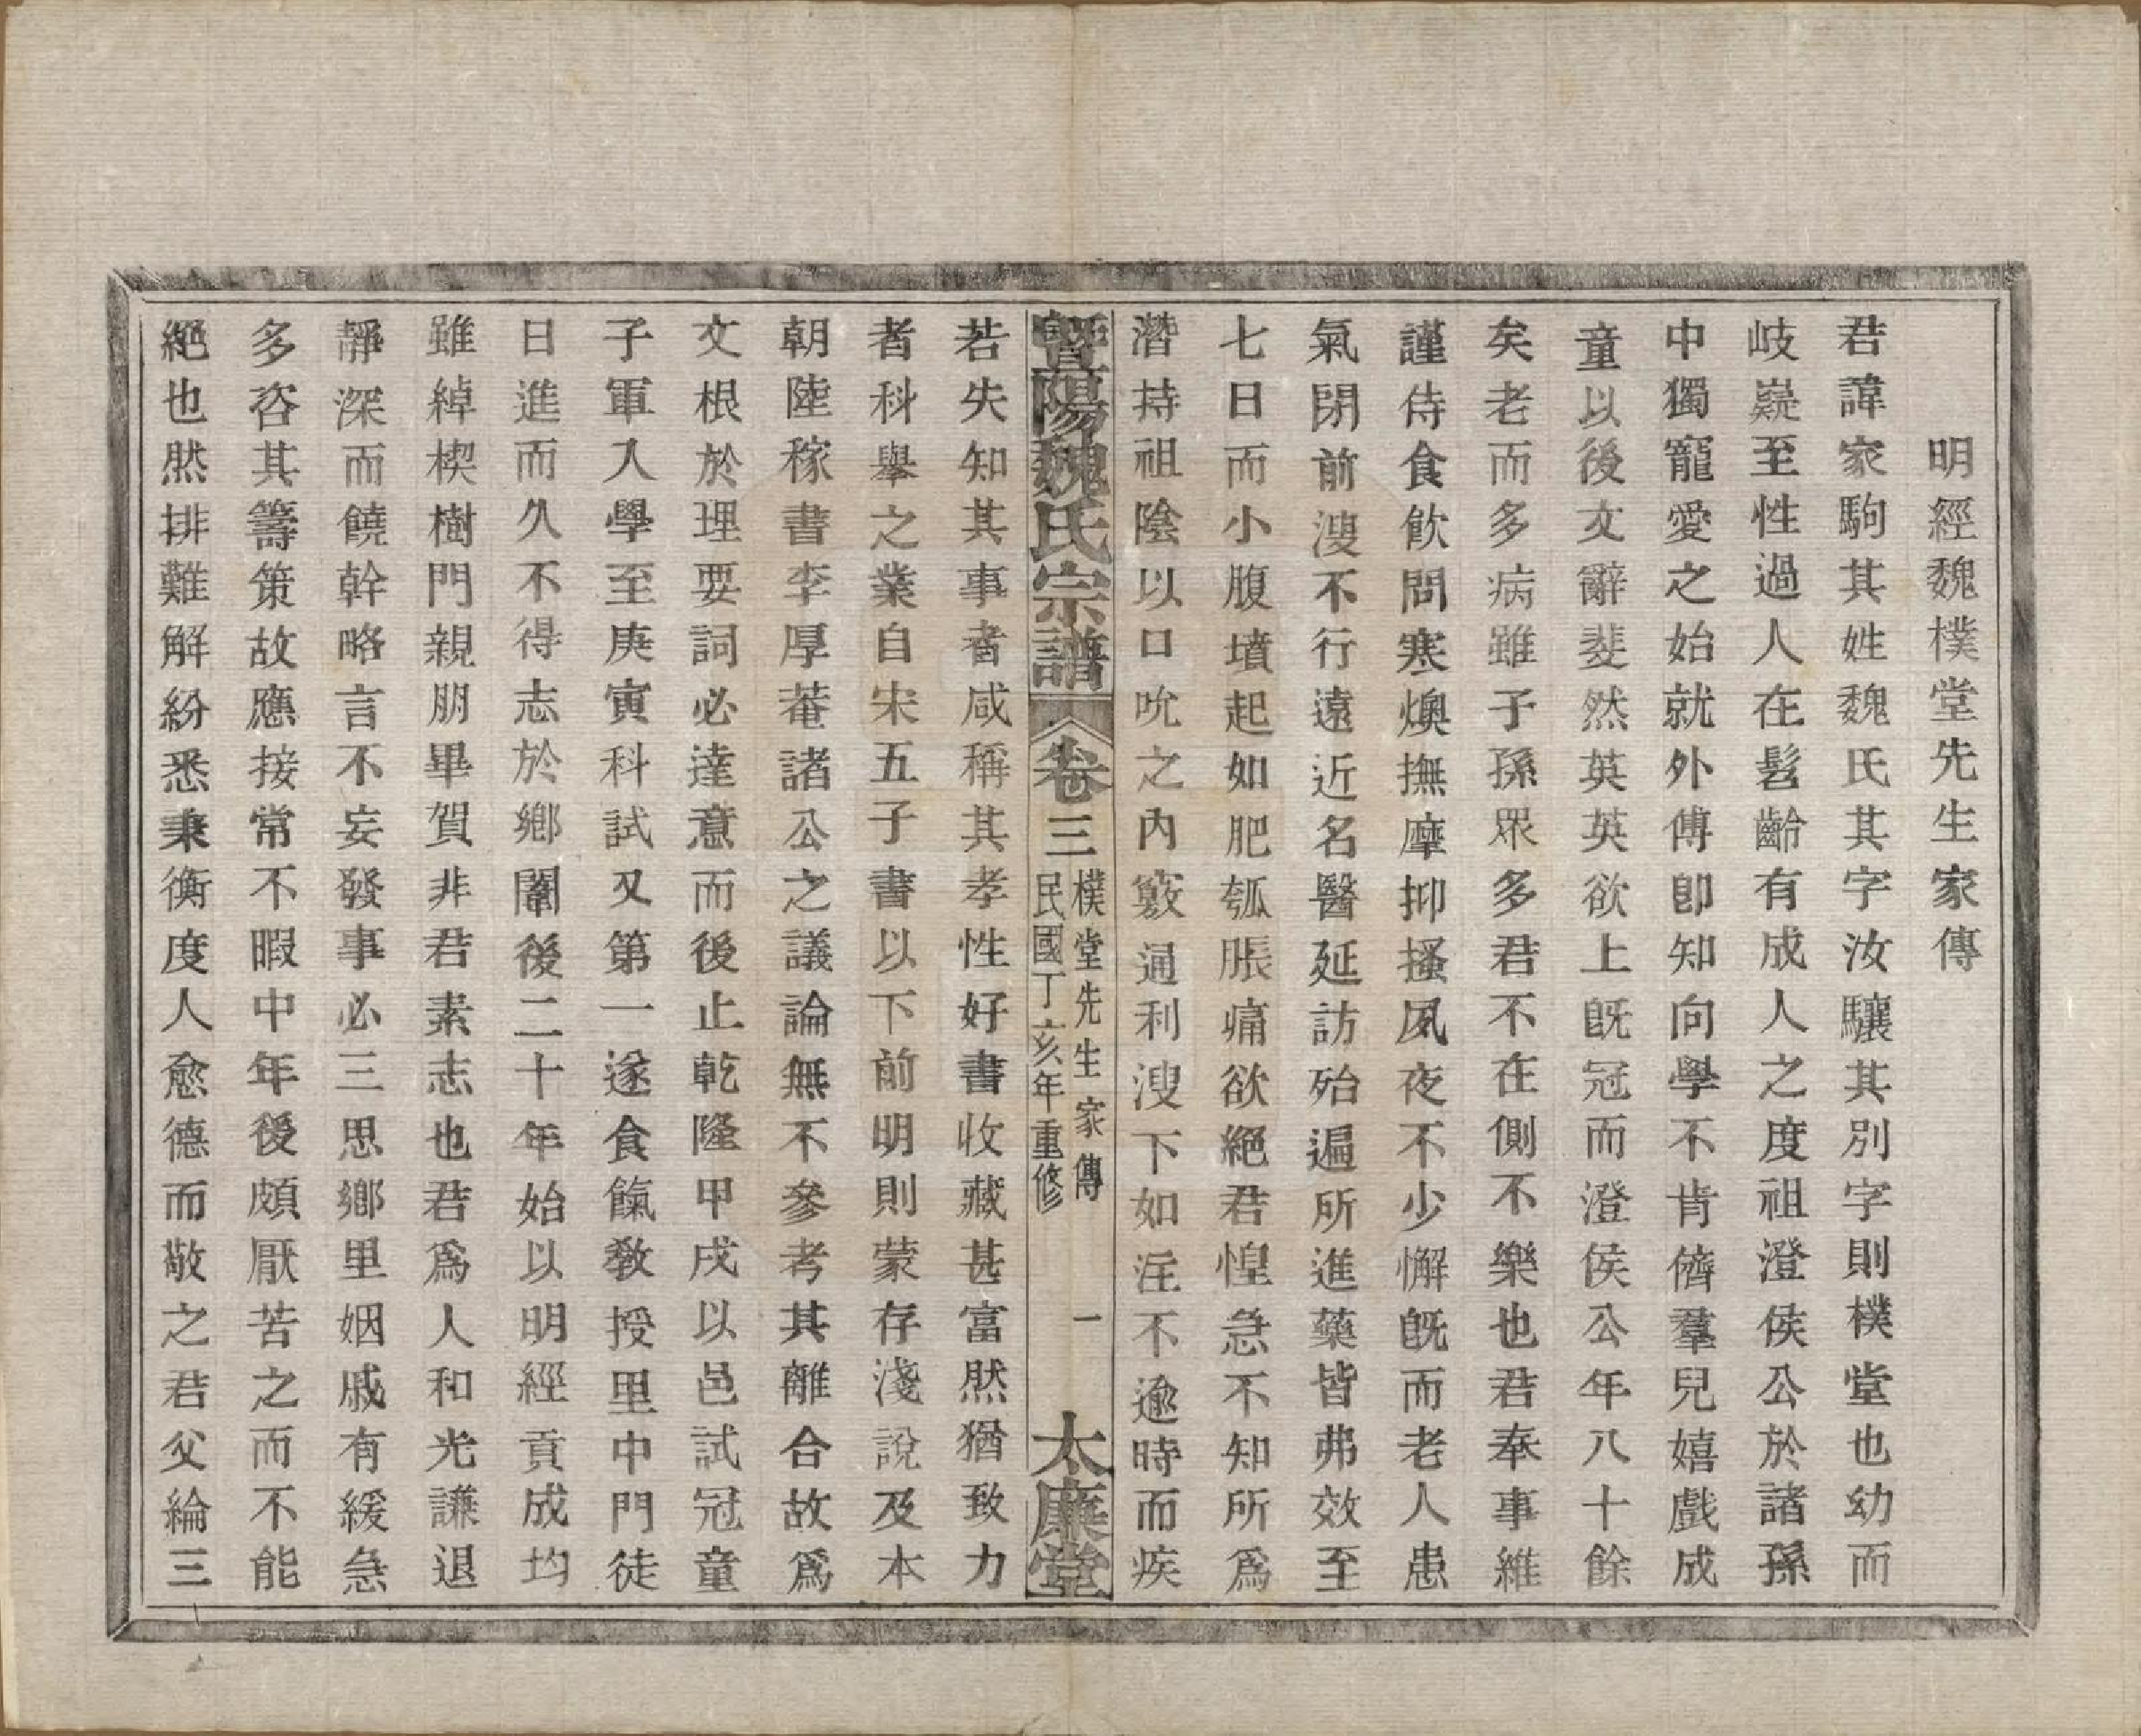 明經魏樸堂先生家傳
君諱家駒其姓魏氏其字汝驤其別字則樸堂也幼而
岐嶷至性過人在髫齡有成人之度祖澄侯公於諸孫
中獨寵愛之始就外傅卽知向學不肯儕羣兒嬉戲成
童以後文辭斐然英英欲上旣冠而澄侯公年八十餘
矣老而多病雖子孫眾多君不在側不樂也君奉事維
謹侍食飮問寒燠撫摩抑搔夙夜不少懈旣而老人患
氣閉前溲不行遠近名醫延訪殆遍所進藥皆弗效至
七日而小腹墳起如肥瓠脹痛欲絕君惶急不知所爲
潛持祖陰以口吮之內竅通利溲下如注不逾時而疾
暨陽魏氏宗譜
卷三
樸堂先生家傳
民國丁亥年重修
一
太廉堂
若失知其事者咸稱其孝性好書收藏甚富然猶致力
者科舉之業自宋五子書以下前明則蒙存淺說及本
朝陸稼書李厚菴諸公之議論無不參考其離合故爲
文根於理要詞必達意而後止乾隆甲戌以邑試冠童
子軍入學至庚寅科試又第一遂食餼敎授里中門徒
日進而久不得志於鄉闈後二十年始以明經貢成均
雖綽楔樹門親朋畢賀非君素志也君爲人和光謙退
靜深而饒幹略言不妄發事必三思鄉里姻戚有緩急
多咨其籌策故應接常不暇中年後頗厭苦之而不能
絕也然排難解紛悉秉衡度人愈德而敬之君父綸三